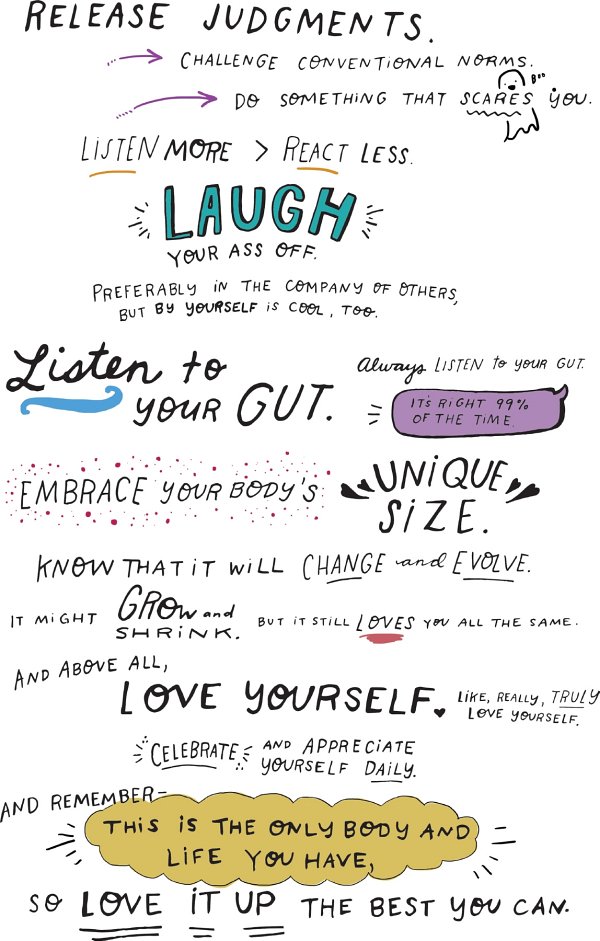 RELEASE JUDGMENTS.
CHALLENGE CONVENTIONAL NORMS.
BOO
DO SOMETHING THAT SCARES YOU.
LISTEN MORE > REACT LESS.
LAUGH
YOUR ASS OFF.
PREFERABLY IN THE COMPANY OF OTHERS,
BUT BY YOURSELF IS COOL, TOO.
Listen to
your GUT.
Always LISTEN to YOUR GUT.
IT'S RIGHT 99%
OF THE TIME.
EMBRACE YOUR BODY'S
UNIQUE
SIZE.
KNOW THAT IT WILL CHANGE and EVOLVE.
IT MIGHT GROW and
SHRINK.
BUT IT STILL LOVES YOU ALL THE SAME.
AND ABOVE ALL,
LOVE YOURSELF.
LIKE, REALLY, TRULY
LOVE YOURSELF.
CELEBRATE AND APPRECIATE
YOURSELF DAILY.
AND REMEMBER-
THIS IS THE ONLY BODY AND
LIFE YOU HAVE,
SO LOVE IT UP THE BEST YOU CAN.